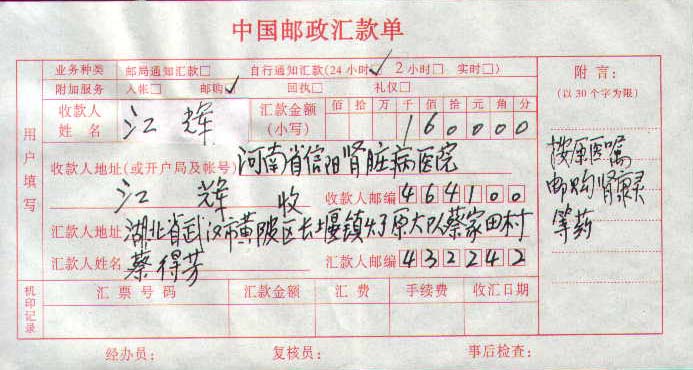 中国邮政汇款单
业务种类 邮局通知汇款□ 自行通知汇款(24小时□ 2小时□ 实时□)
附加服务 入帐□ 邮购□ 回执□ 礼仪□
收款人姓名 江辉 汇款金额(小写) 佰拾万千佰拾元角分 160000
收款人地址(或开户局及帐号) 河南省信阳肾脏病医院
江辉 收 收款人邮编 464100
汇款人地址 湖北省武汉市黄陂区长堰镇 原大队蔡家田村
汇款人姓名 蔡得芳 汇款人邮编 432242
用户填写
附言:
(以30个字为限)
按原医嘱
邮购肾康灵
等药
机印记录
汇票号码 汇款金额 汇费 手续费 收汇日期
经办员: 复核员: 事后检查: